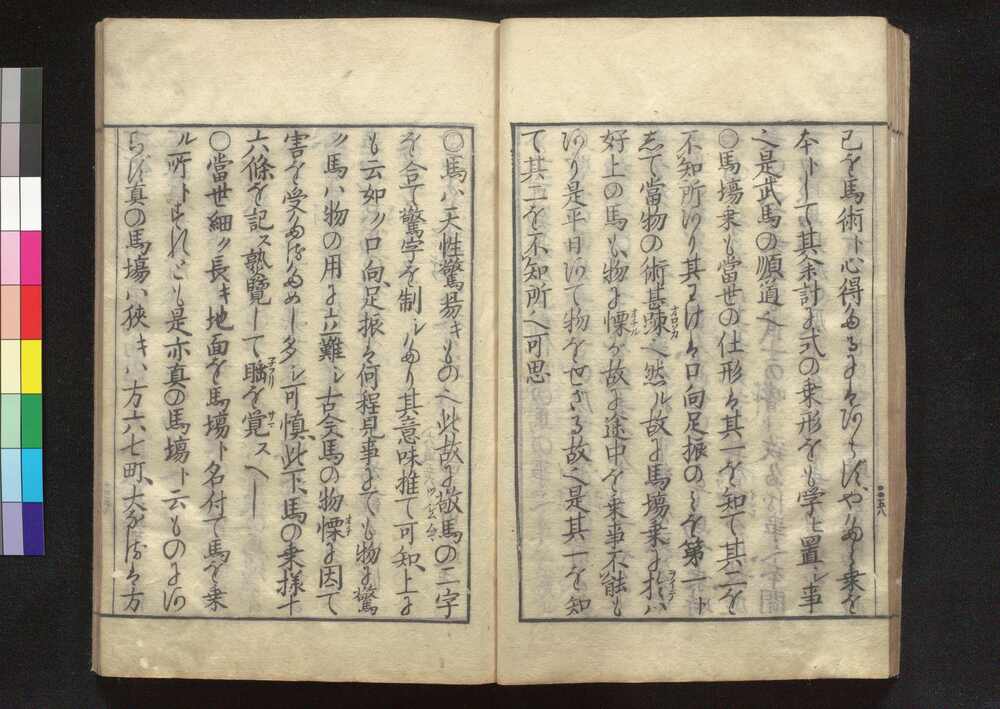 已を馬術ト心得たるにはあらずややはり乗を
本トして其余計に弍の乗形をも学ヒ置シ事
之是武馬の順道也
○馬塲乗も當世の仕形は其一を知て其二を
不知所あり其わけは口向足振のミを第一ト
して當物の術甚疎へ然ル故に馬塲乗に於ハ
好上の馬も物に慄が故に途中を乗事不能も
あり是平日に於て物を せざる故之是其一を知
て其二を不知所へ可思
○馬ハ天性驚昜キものへ此故に敬馬の二字
を合て驚字を制シたり其意味推て可知、上に
も云如ク口向足振は何程見事にても物に驚
ク馬ハ物の用に立難シ古今馬の物慄に因て
害を受たるためし多シ可慎、此下、馬の乗様十
六條を記ス熟覽して眠を覚スへし
○當世細ク長キ地面を馬塲ト名付て馬を乗
ル所トすれども是亦真の馬塲ト云ものにあ
らず真の馬塲ハ狹キハ方六七町、大なるは方